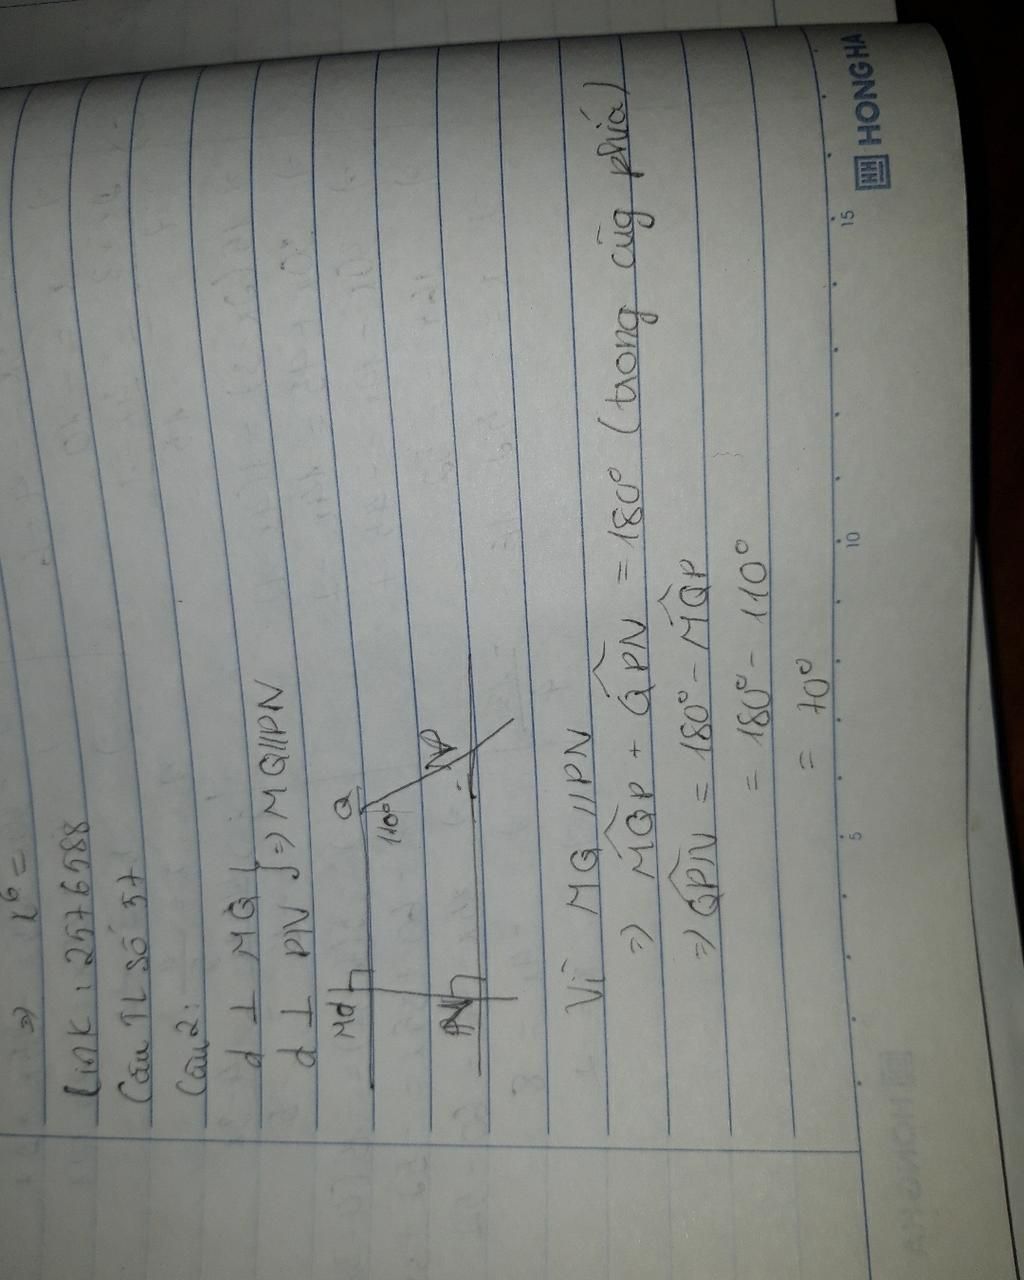 =) x⁶ =
Link : 2576588
Câu TL số 57
Câu 2:
d ⊥ MQ }
d ⊥ PN } => MQ//PN
Md Q
110°
N P
Vì MQ //PN
=) MQP + QPN = 180° (trong cùg phía)
=) QPN = 180° - MQP
= 180° - 110°
= 70°
5 10 15
HH HONG HA